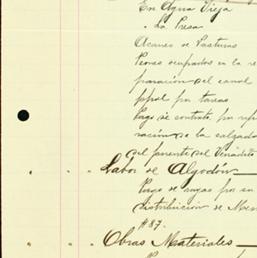 En Agua Vieja
" La Presa
Acarreo de Pasturas
Peones ocupados en la re
paración del canal
ppal por tareas
Pago de contrato por repa
ración de la calzada
del puente del Venadito
Labor de Algodón
Pago de rayas por su
distribución de
#87.
Obras Materiales